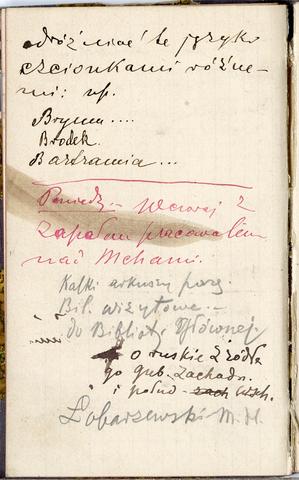 odróżniać te języki
czcionkami różne-
mi: np.
Bryum....
Brodek.
Bartramia...
Poniedz. – Wczoraj z
zapałem pracowałem
nad Mchami.
Kalki arkuszy parę.
Bil. wizytowe. –
do Bibliot. Głównej.
o ruskie źródła
go gub. zachodn.
i połud. zach wsch.
Łobarzewski M. H.